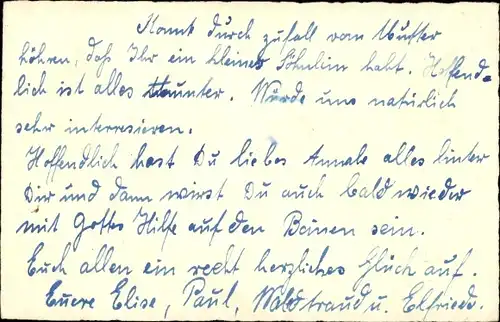 Konnt durch zufall vom Mutter
höhren, daß Ihr ein kleines Söhnlein habt. Hoffend-
lich ist alles munter. Würde uns natürlich
sehr interresieren.
Hoffendlich hast Du liebes Annale alles hinter
Dir und dann wirst Du auch bald wieder
mit Gottes Hilfe auf den Beinen sein.
Euch allen ein recht herzliches Glück auf.
Euere Elise, Paul, Waldtraud u. Elfriede.